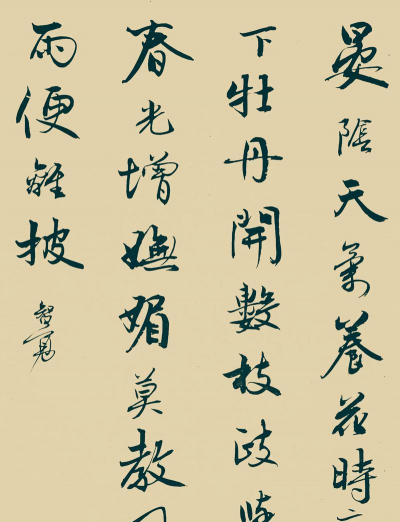 晏陰天氣養花時
下牡丹開數枝歧
春光增嫵媚莫教
雨便離披